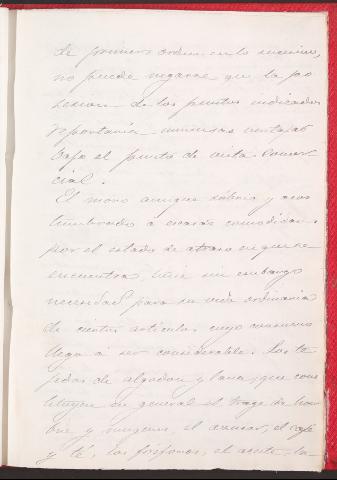 de primer orden en lo sucesivo,
no puede negarse que la po
sesion de los puntos indicados
reportaria inmensas ventajas
bajo el punto de vista comer-
cial.
El moro aunque sobrio y acos
tumbrado a escasas comodidades
por el estado de atraso en que se
encuentra, tiene sin embargo
necesidad para su vida ordinaria
de ciertos artículos cuyo consumo
llega á ser considerable. Los te
jidos de algodon y lana, que cons
tituyen en general el trage de hom
bre y mugeres, el azucar, el café
y té, los fósforos, el aceite, la